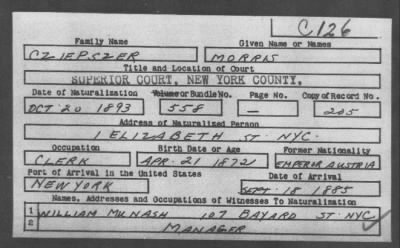 C126
Family Name Given Name or Names
CZIEPSZER MORRIS
Title and Location of Court
SUPERIOR COURT, NEW YORK COUNTY,
Date of Naturalization Volume or Bundle No. Page No. Copy of Record No.
OCT. 20 1893 558 — 205
Address of Naturalized Person
1 ELIZABETH ST. NYC.
Occupation Birth Date or Age Former Nationality
CLERK APR. 21 1872 EMPEROR AUSTRIA
Port of Arrival in the United States Date of Arrival
NEW YORK SEPT. 18 1885
Names, Addresses and Occupations of Witnesses To Naturalization
1 WILLIAM MUNASH 107 BAYARD ST. NYC
2 MANAGER